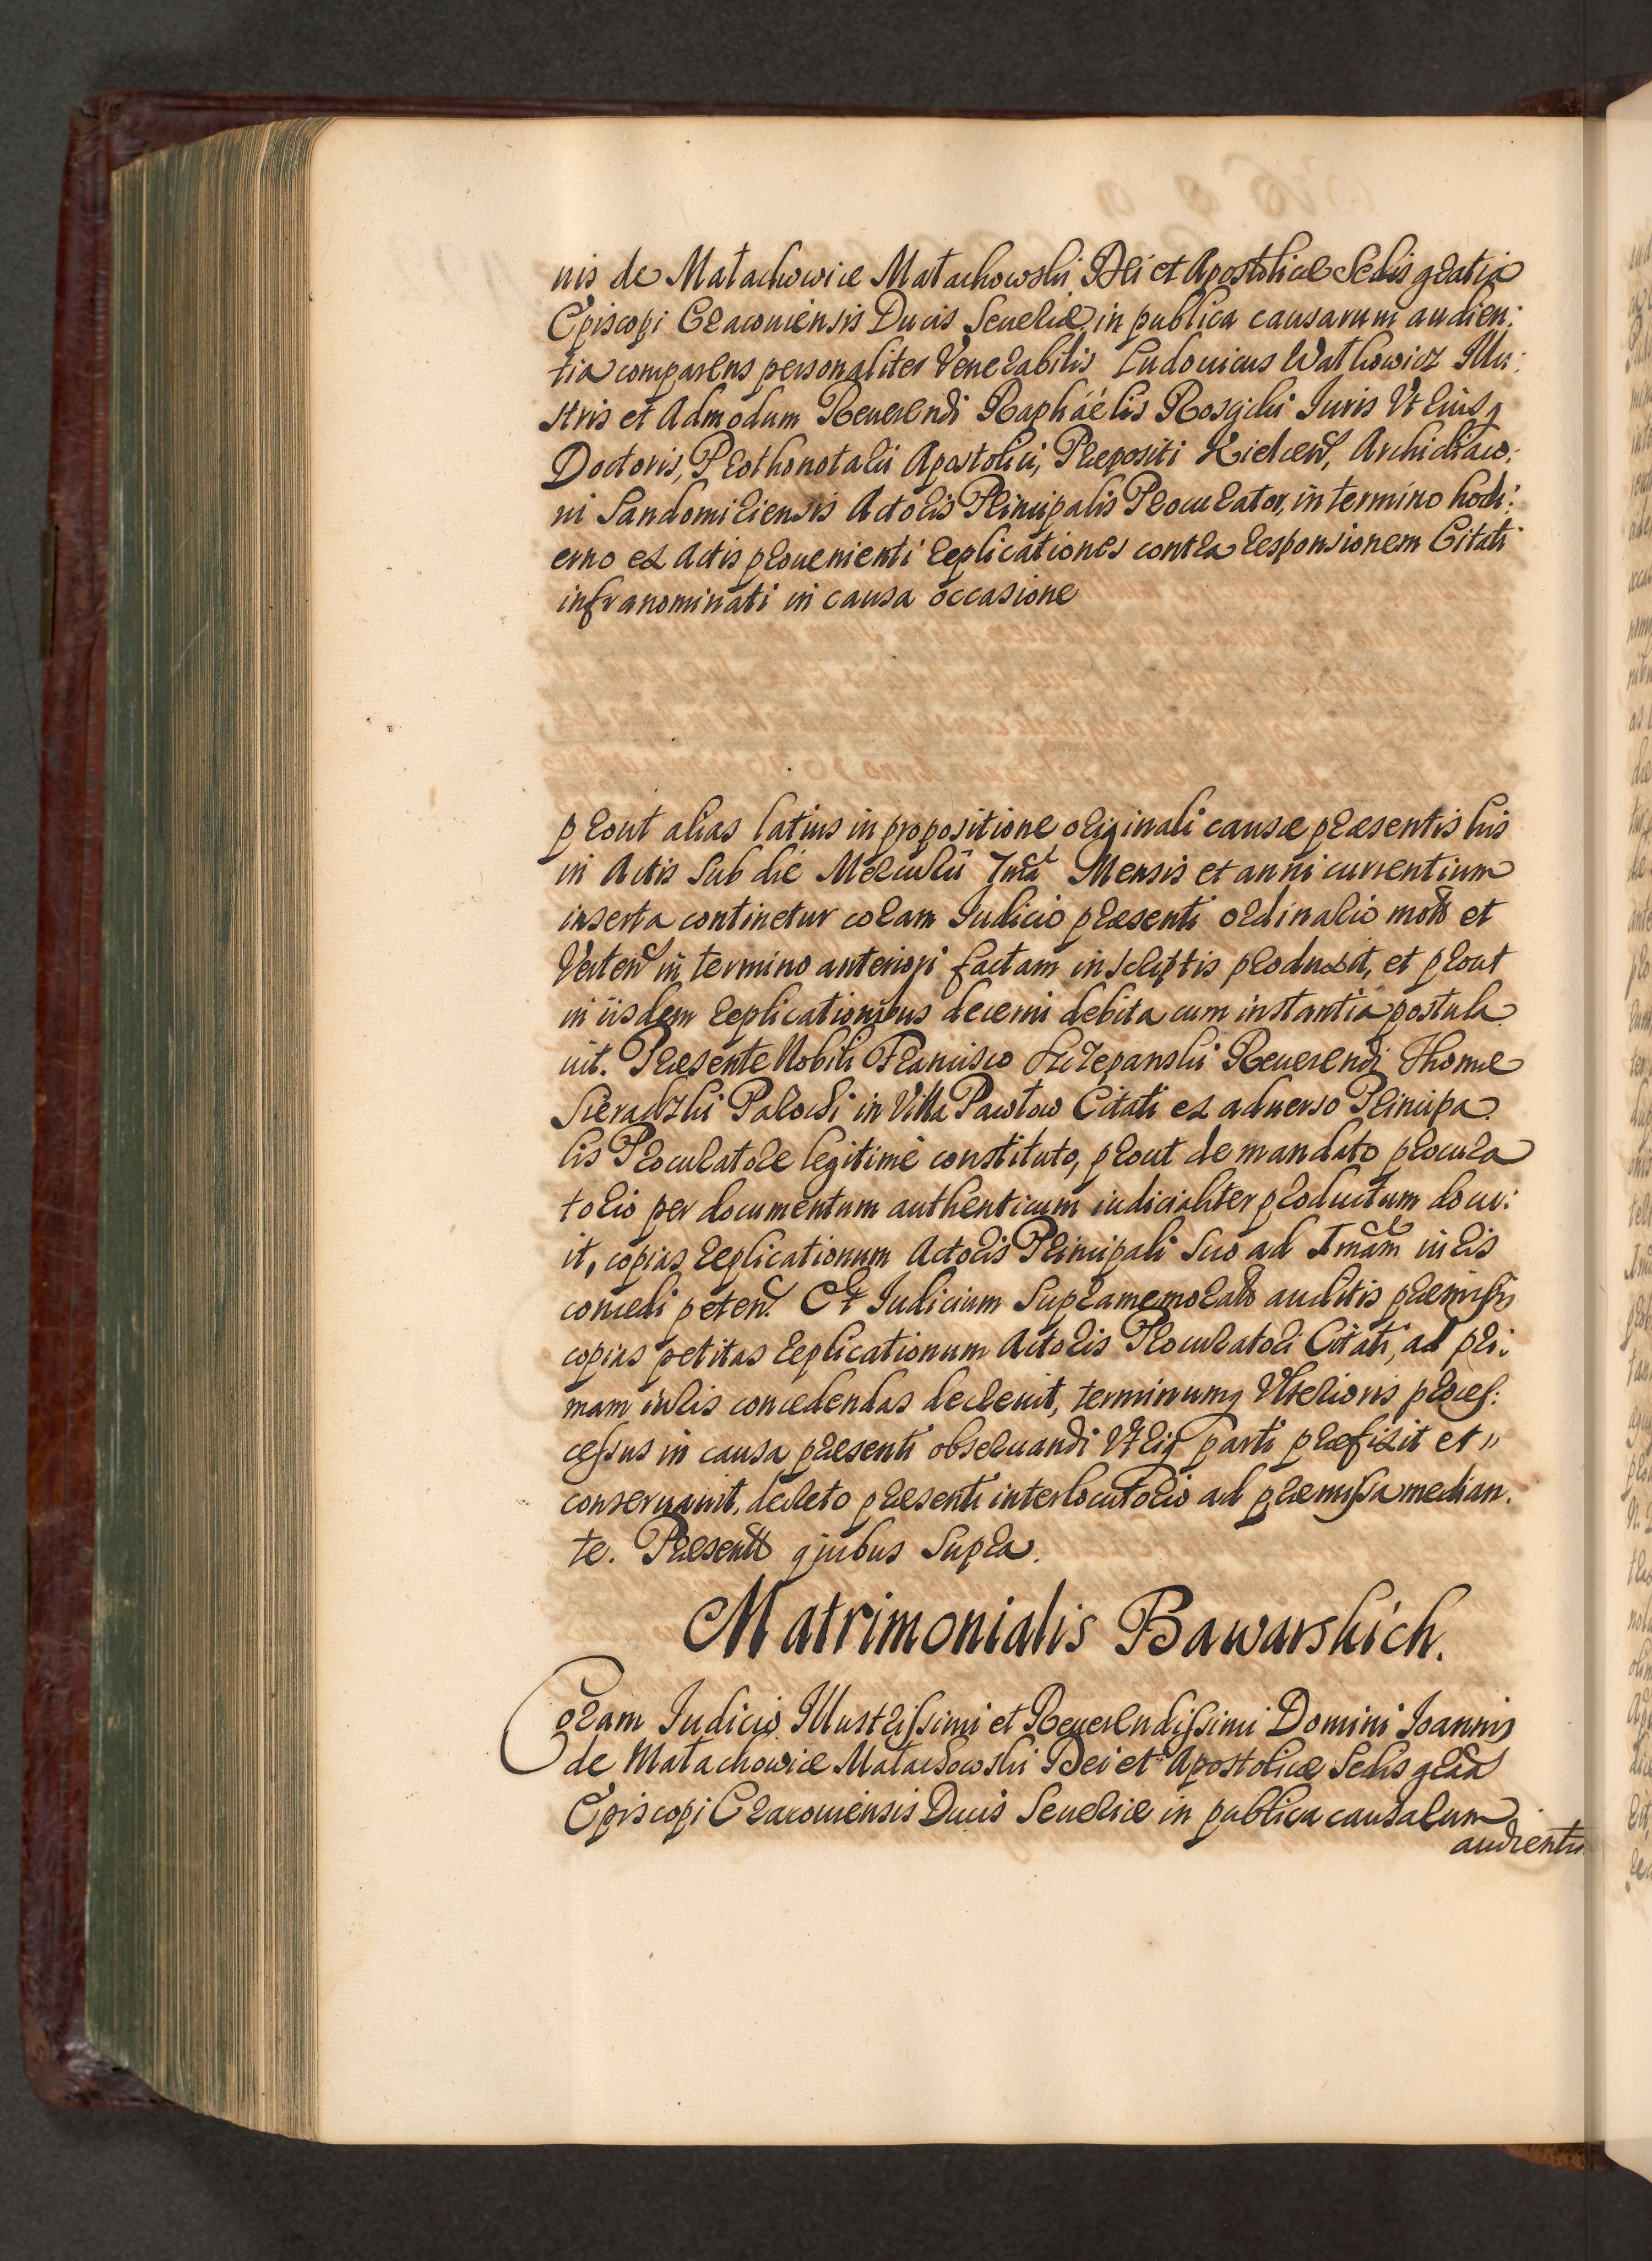 nis de Małachowice Małachowski Dei et Apostolicæ Sedis gratia
Episcopi Cracouiensis Ducis Seueriæ, in publica causarum audien:
tia comparens personaliter Venerabilis Ludouicus Wałkowicz Illu:
stris et Admodum Reuerendi Raphaélis Juris Vtriusq
Doctoris, Prothonotarii Apostolici, Præpositi Kielcen, Archidiaco:
ni Sandomiriensis Actoris Principalis Procurator, in termino hodi:
erno ex Actis prouenienti replicationes contra responsionem Citati
infranominati in causa occasione
prout alias latius in propositione originali causæ præsentis his
in Actis sub die Mercurii Mensis et anni currentium
inserta continetur coram Iudicio præsenti ordinario mot et
Verten in termino anteriori factam in scriptis produxit, et prout
in iisdem replicationibus decerni debita cum instantia postula
uit. Præsente Nobili Francisco Szczepanski Reuerendi Thomæ
Sieradzki Parochi in Villa Pawłow Citati ex aduerso Principa
lis Procuratore legitimè constituto, prout de mandato procura
torio per documentum authenticum iudicialiter productum docu:
it, copias replicationum Actoris Principali suo ad Imam iuris
concedi peten. Et Iudicium supramemorat auditis præmissis
copias petitas replicationum Actoris Procuratori Citati, ad pri:
mam iuris concedendas decreuit, terminumq Vlterioris proces:
cessus in causa præsenti obseruandi Vtriq parti præfixit et "
conseruauit, decreto præsenti interlocutorio ad præmissa median.
te. Præsentt quibus supra.
Matrimonialis Bawarskich.
Coram Judicio Illustrissimi et Reuerendissimi Domini Joannis
de Małachowice Małachowski Dei et Apostolicæ Sedis grãa
Episcopi Cracouiensis Ducis Seueriæ in publica causarum
audientia